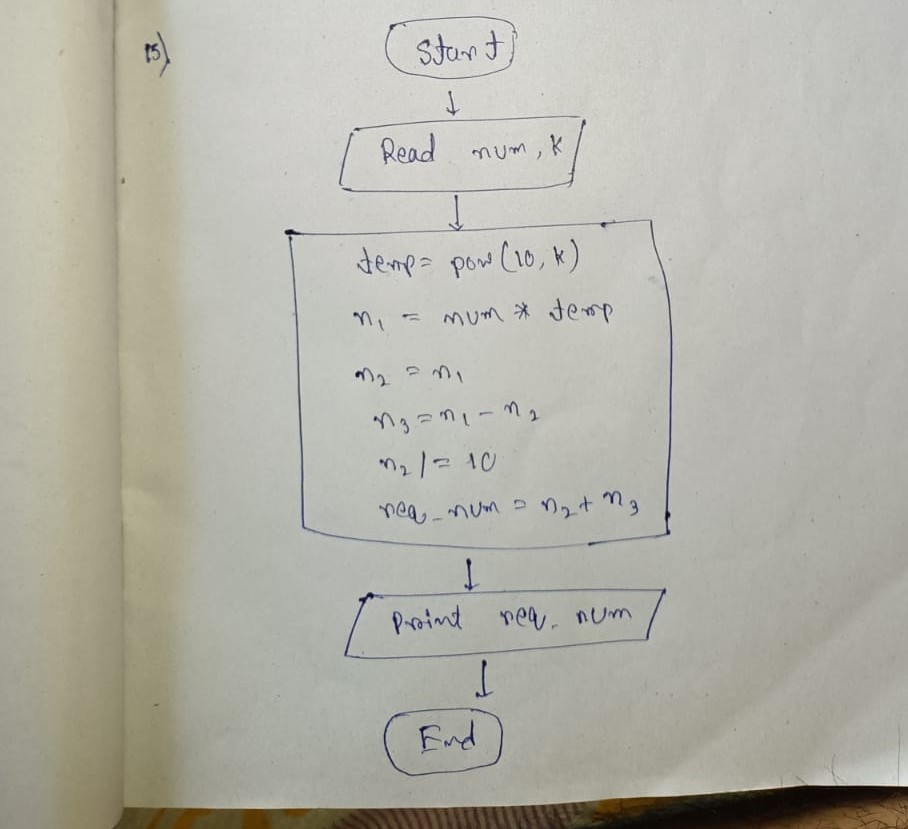 15)
Start
Read num, K
temp = pow(10, K)
n₁ = num * temp
n₂ = n₁
n₃ = n₁ - n₂
n₂ /= 10
req_num = n₂ + n₃
Print req_num
End